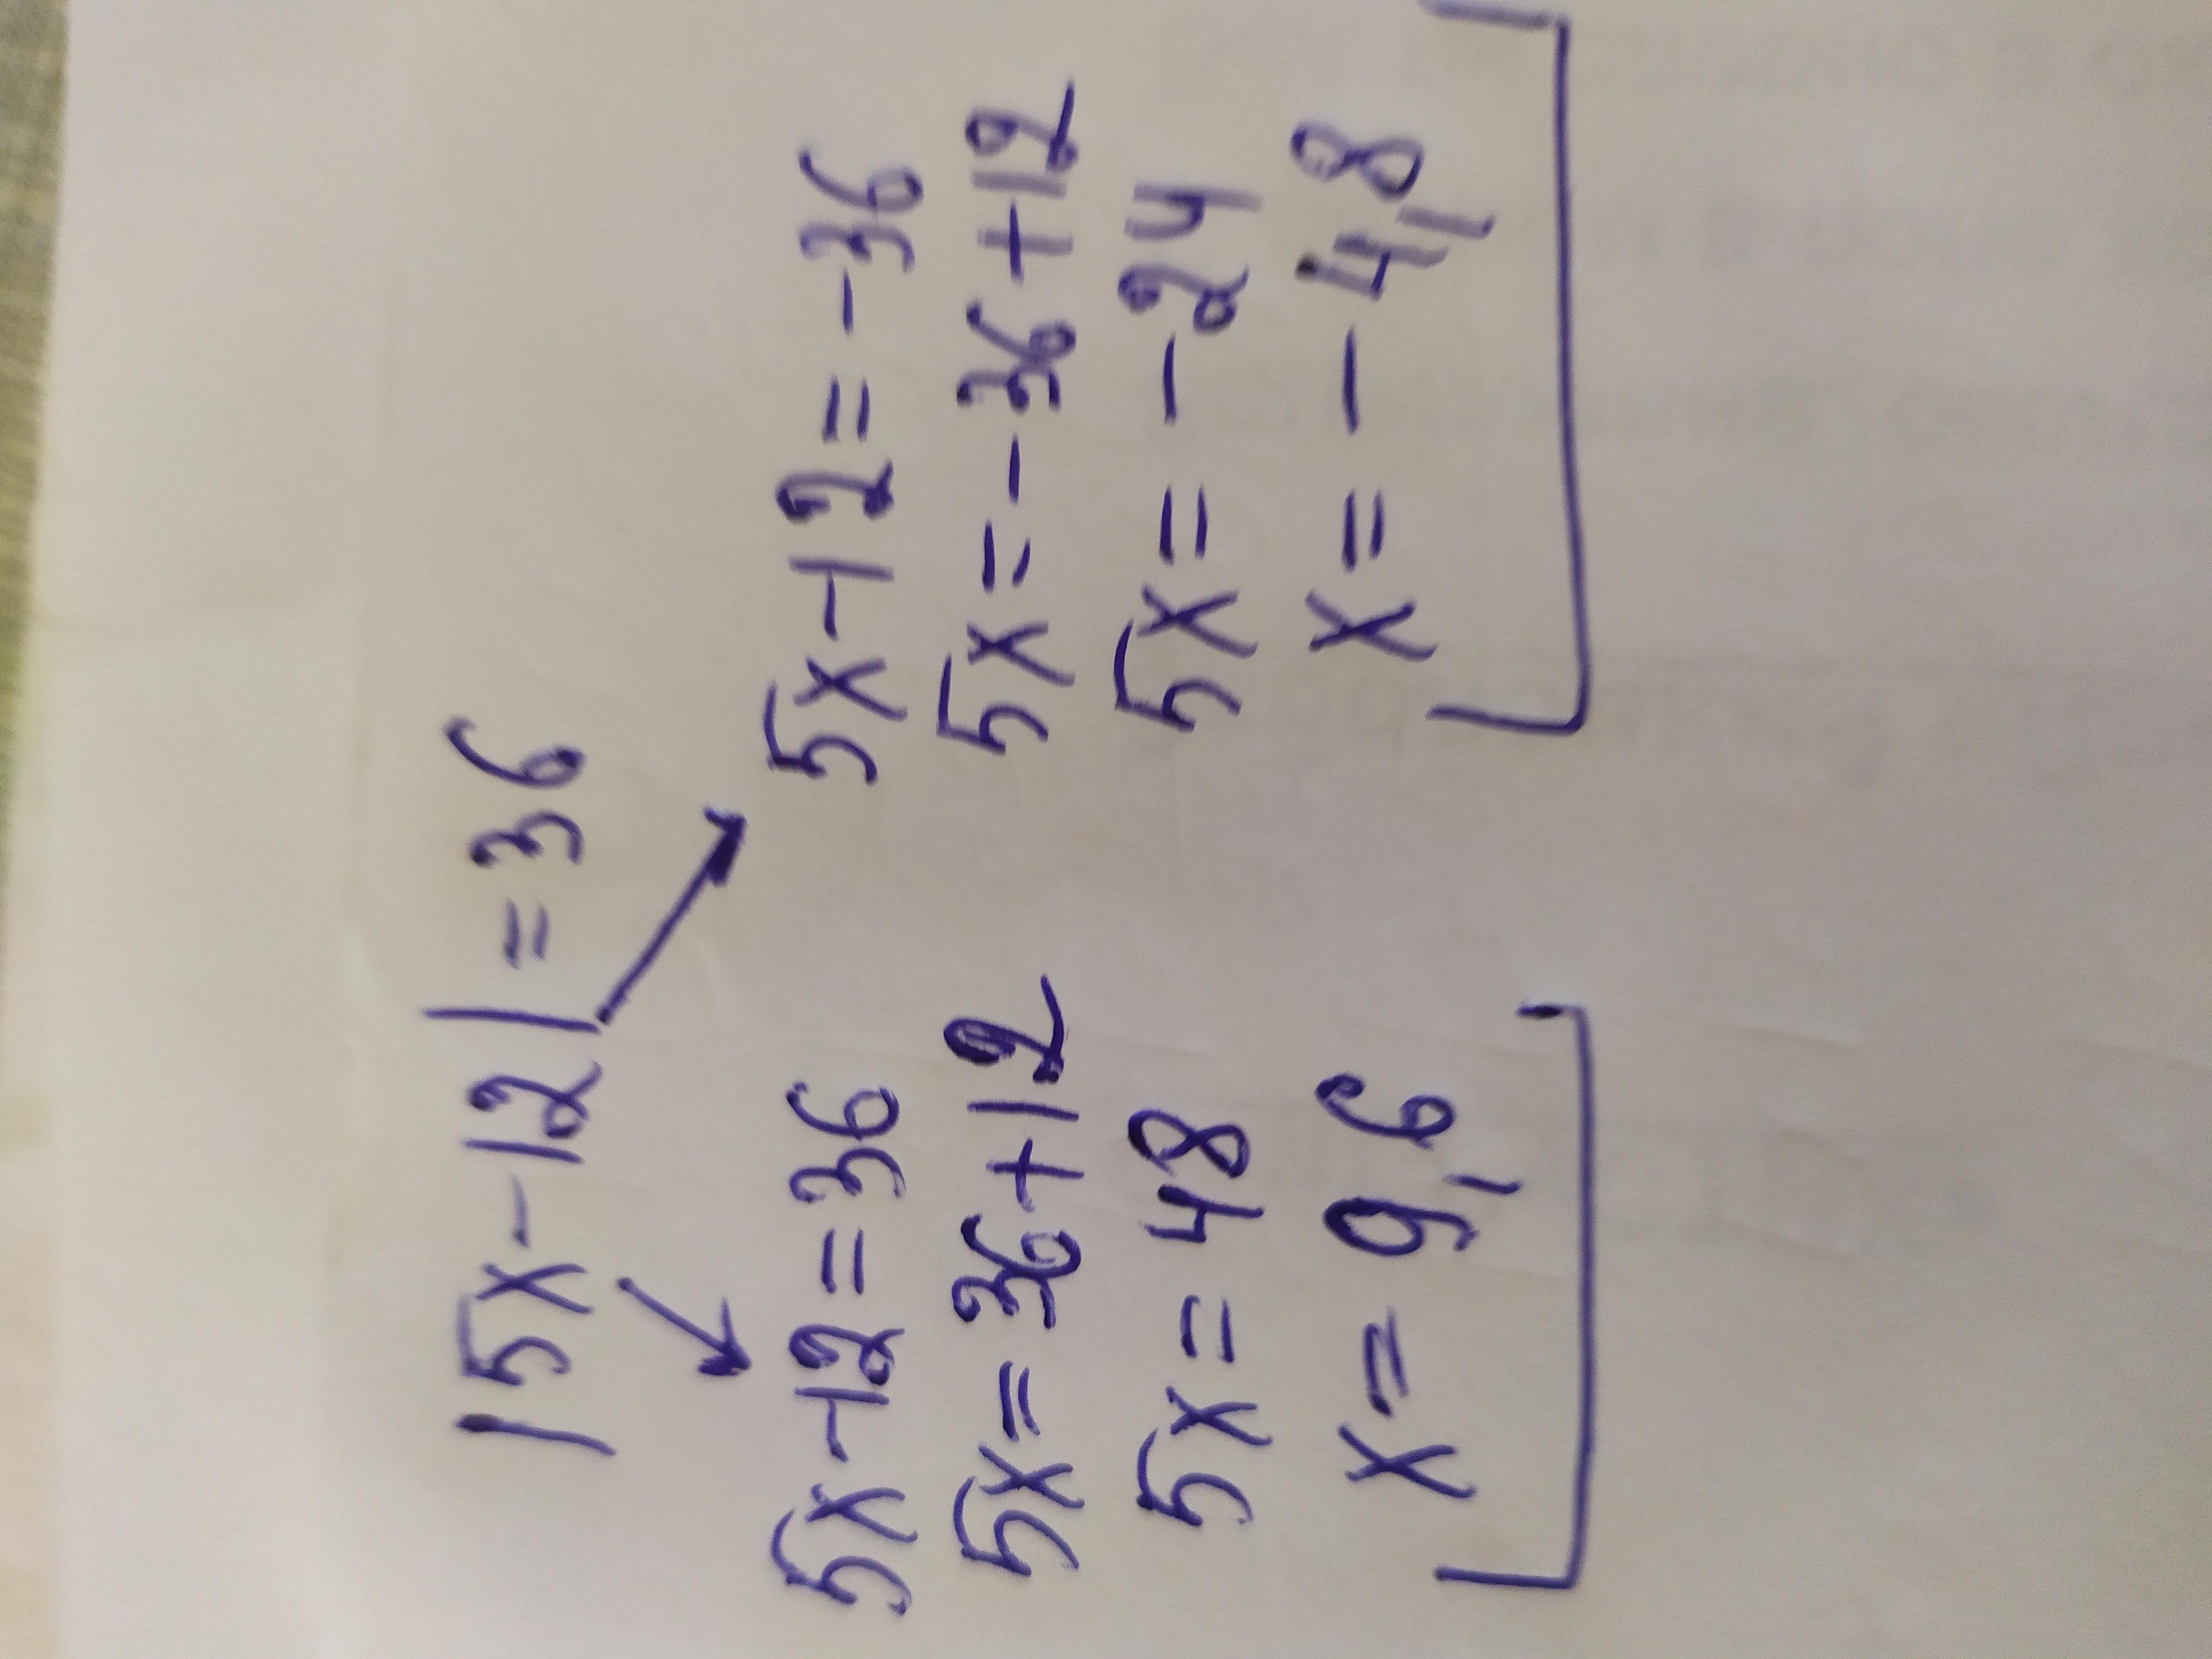 |5x-12|=36
5x-12=36
5x=36+12
5x=48
x=9,6
5x-12=-36
5x=-36+12
5x=-24
x=-4,8